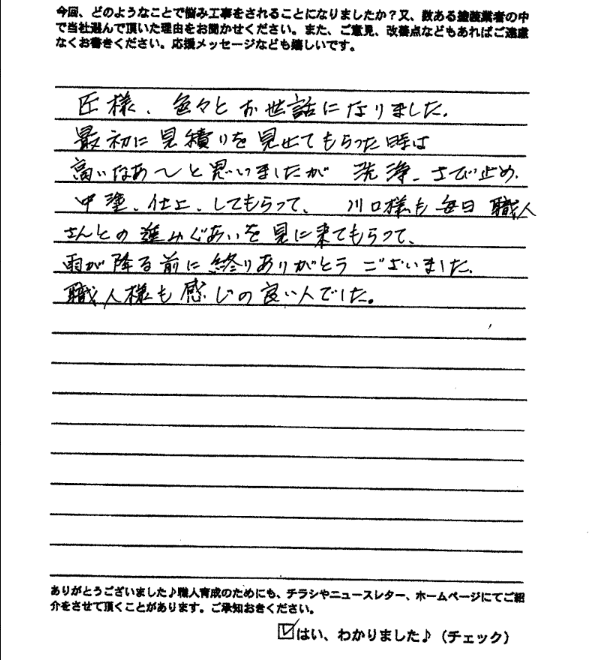 今回、どのようなことで悩み工事をされることになりましたか？又、数ある塗装業者の中
で当社選んで頂いた理由をお聞かせください。また、ご意見、改善点などもあればご遠慮
なくお書きください。応援メッセージなども嬉しいです。
匠様、色々とお世話になりました。
最初に見積りを見せてもらった時は
高いなあ〜と思いましたが 洗浄、さび止め、
中塗、仕上、してもらって、 川口様も毎日 職人
さんとの進みぐあいを見に来てもらって、
雨が降る前に終りありがとうございました。
職人様も感じの良い人でした。
ありがとうございました♪職人育成のためにも、チラシやニュースレター、ホームページにてご紹
介をさせて頂くことがあります。ご承知おきください。
☑はい、わかりました♪（チェック）